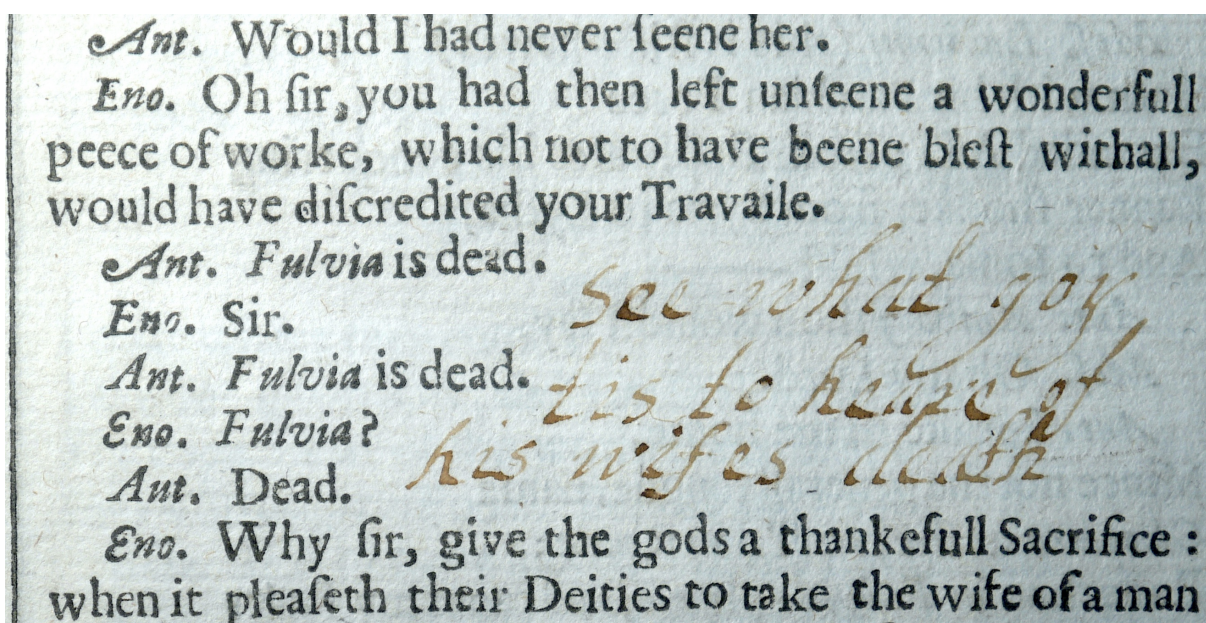 Ant. Would I had never ſeene her.
Eno. Oh ſir, you had then left unſeene a wonderfull
peece of worke, which not to have beene bleſt withall,
would have diſcredited your Travaile.
Ant. Fulvia is dead.
see what goy
Eno. Sir.
Ant. Fulvia is dead.
tis to heare of
Eno. Fulvia?
his wifes death
Aut. Dead.
Eno. Why ſir, give the gods a thankefull Sacrifice :
when it pleaſeth their Deities to take the wife of a man